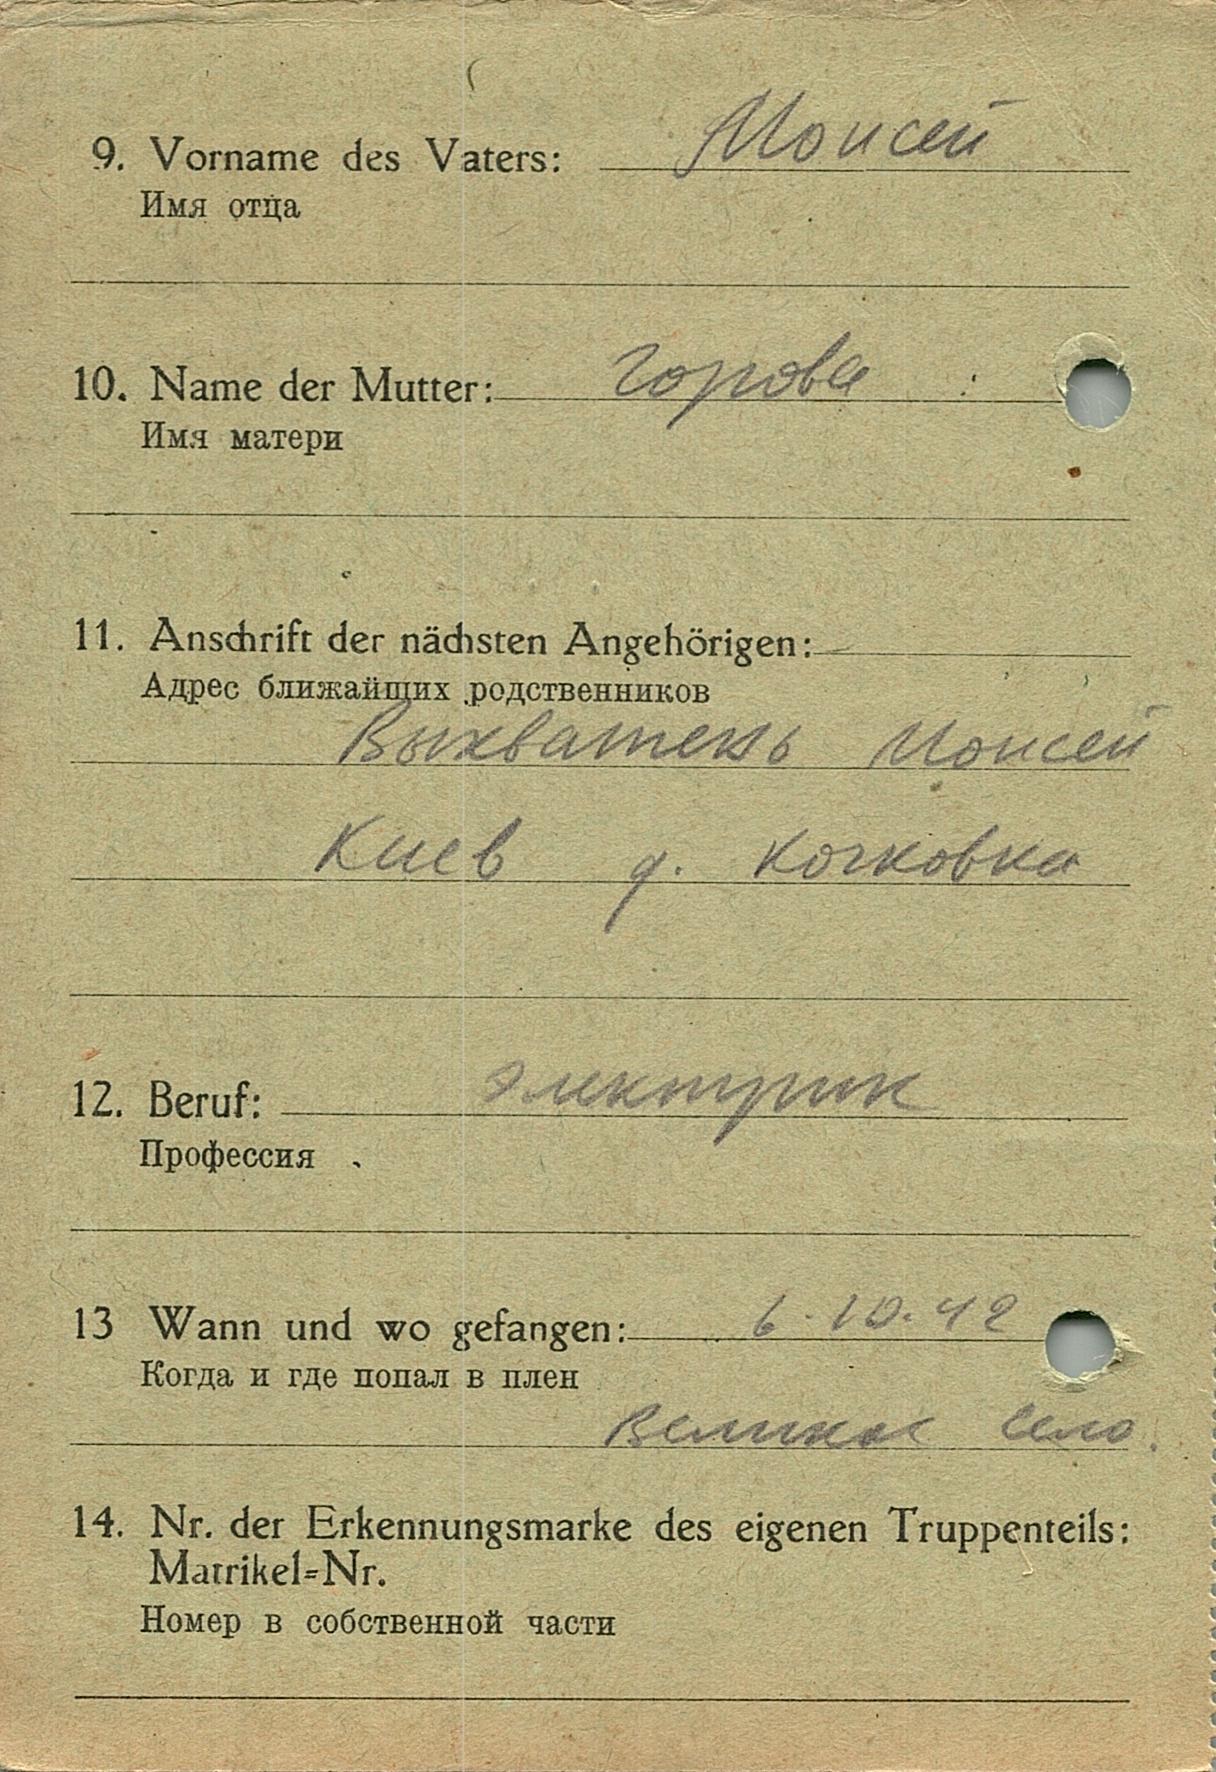 9. Vorname des Vaters: Моисей
Имя отца
10. Name der Mutter: Горова
Имя матери
11. Anschrift der nächsten Angehörigen:
Адрес ближайших родственников
Выхватень Моисей
Киев д. Кочковка
12. Beruf: электрик
Профессия
13 Wann und wo gefangen: 6.10.42
Когда и где попал в плен
Великое село.
14. Nr. der Erkennungsmarke des eigenen Truppenteils:
Matrikel=Nr.
Номер в собственной части